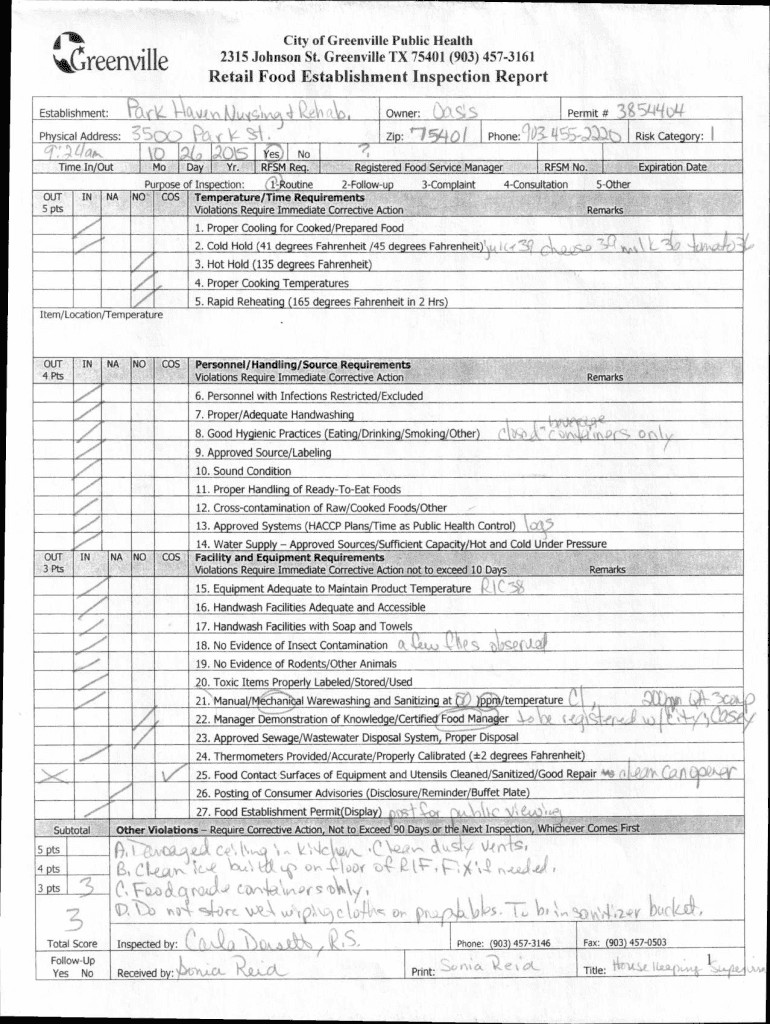 Greenville
City of Greenville Public Health
2315 Johnson St. Greenville TX 75401 (903) 457-3161
Retail Food Establishment Inspection Report
Establishment: Park Haven Nursing & Rehab. Owner: Oasis Permit # 3854404
Physical Address: 3500 Park St. Zip: 75401 Phone: 903-455-2220 Risk Category: 1
9:24am 10 26 2015 Yes No ?
Time In/Out Mo Day Yr. RFSM Req. Registered Food Service Manager RFSM No. Expiration Date
Purpose of Inspection: 1-Routine 2-Follow-up 3-Complaint 4-Consultation 5-Other
OUT IN NA NO COS Temperature/Time Requirements
5 pts Violations Require Immediate Corrective Action Remarks
1. Proper Cooling for Cooked/Prepared Food
2. Cold Hold (41 degrees Fahrenheit /45 degrees Fahrenheit) juice 39 cheese 39 milk 36 tomato 36
3. Hot Hold (135 degrees Fahrenheit)
4. Proper Cooking Temperatures
5. Rapid Reheating (165 degrees Fahrenheit in 2 Hrs)
Item/Location/Temperature
OUT IN NA NO COS Personnel/Handling/Source Requirements
4 Pts Violations Require Immediate Corrective Action Remarks
6. Personnel with Infections Restricted/Excluded
7. Proper/Adequate Handwashing
8. Good Hygienic Practices (Eating/Drinking/Smoking/Other) closed beverage containers only
9. Approved Source/Labeling
10. Sound Condition
11. Proper Handling of Ready-To-Eat Foods
12. Cross-contamination of Raw/Cooked Foods/Other
13. Approved Systems (HACCP Plans/Time as Public Health Control) logs
14. Water Supply – Approved Sources/Sufficient Capacity/Hot and Cold Under Pressure
OUT IN NA NO COS Facility and Equipment Requirements
3 Pts Violations Require Immediate Corrective Action not to exceed 10 Days Remarks
15. Equipment Adequate to Maintain Product Temperature RIC 38
16. Handwash Facilities Adequate and Accessible
17. Handwash Facilities with Soap and Towels
18. No Evidence of Insect Contamination a few flies observed
19. No Evidence of Rodents/Other Animals
20. Toxic Items Properly Labeled/Stored/Used
21. Manual/Mechanical Warewashing and Sanitizing at ( )ppm/temperature Cl, 200ppm QA 3comp
22. Manager Demonstration of Knowledge/Certified Food Manager to be registered w/ city, Casey
23. Approved Sewage/Wastewater Disposal System, Proper Disposal
24. Thermometers Provided/Accurate/Properly Calibrated (±2 degrees Fahrenheit)
25. Food Contact Surfaces of Equipment and Utensils Cleaned/Sanitized/Good Repair clean can opener
26. Posting of Consumer Advisories (Disclosure/Reminder/Buffet Plate)
27. Food Establishment Permit(Display) post for public viewing
Subtotal Other Violations – Require Corrective Action, Not to Exceed 90 Days or the Next Inspection, Whichever Comes First
5 pts A. Damaged ceiling in kitchen. Clean dusty vents.
4 pts B. Clean ice build up on floor of RIF. Fix if needed.
3 pts 3 C. Food grade containers only.
3 D. Do not store wet wiping cloths on prep tables. To be in sanitizer bucket.
Total Score Inspected by: Carla Dorsett, R.S. Phone: (903) 457-3146 Fax: (903) 457-0503
Follow-Up
Yes No Received by: Sonia Reid Print: Sonia Reid Title: House Keeping Supervisor
1